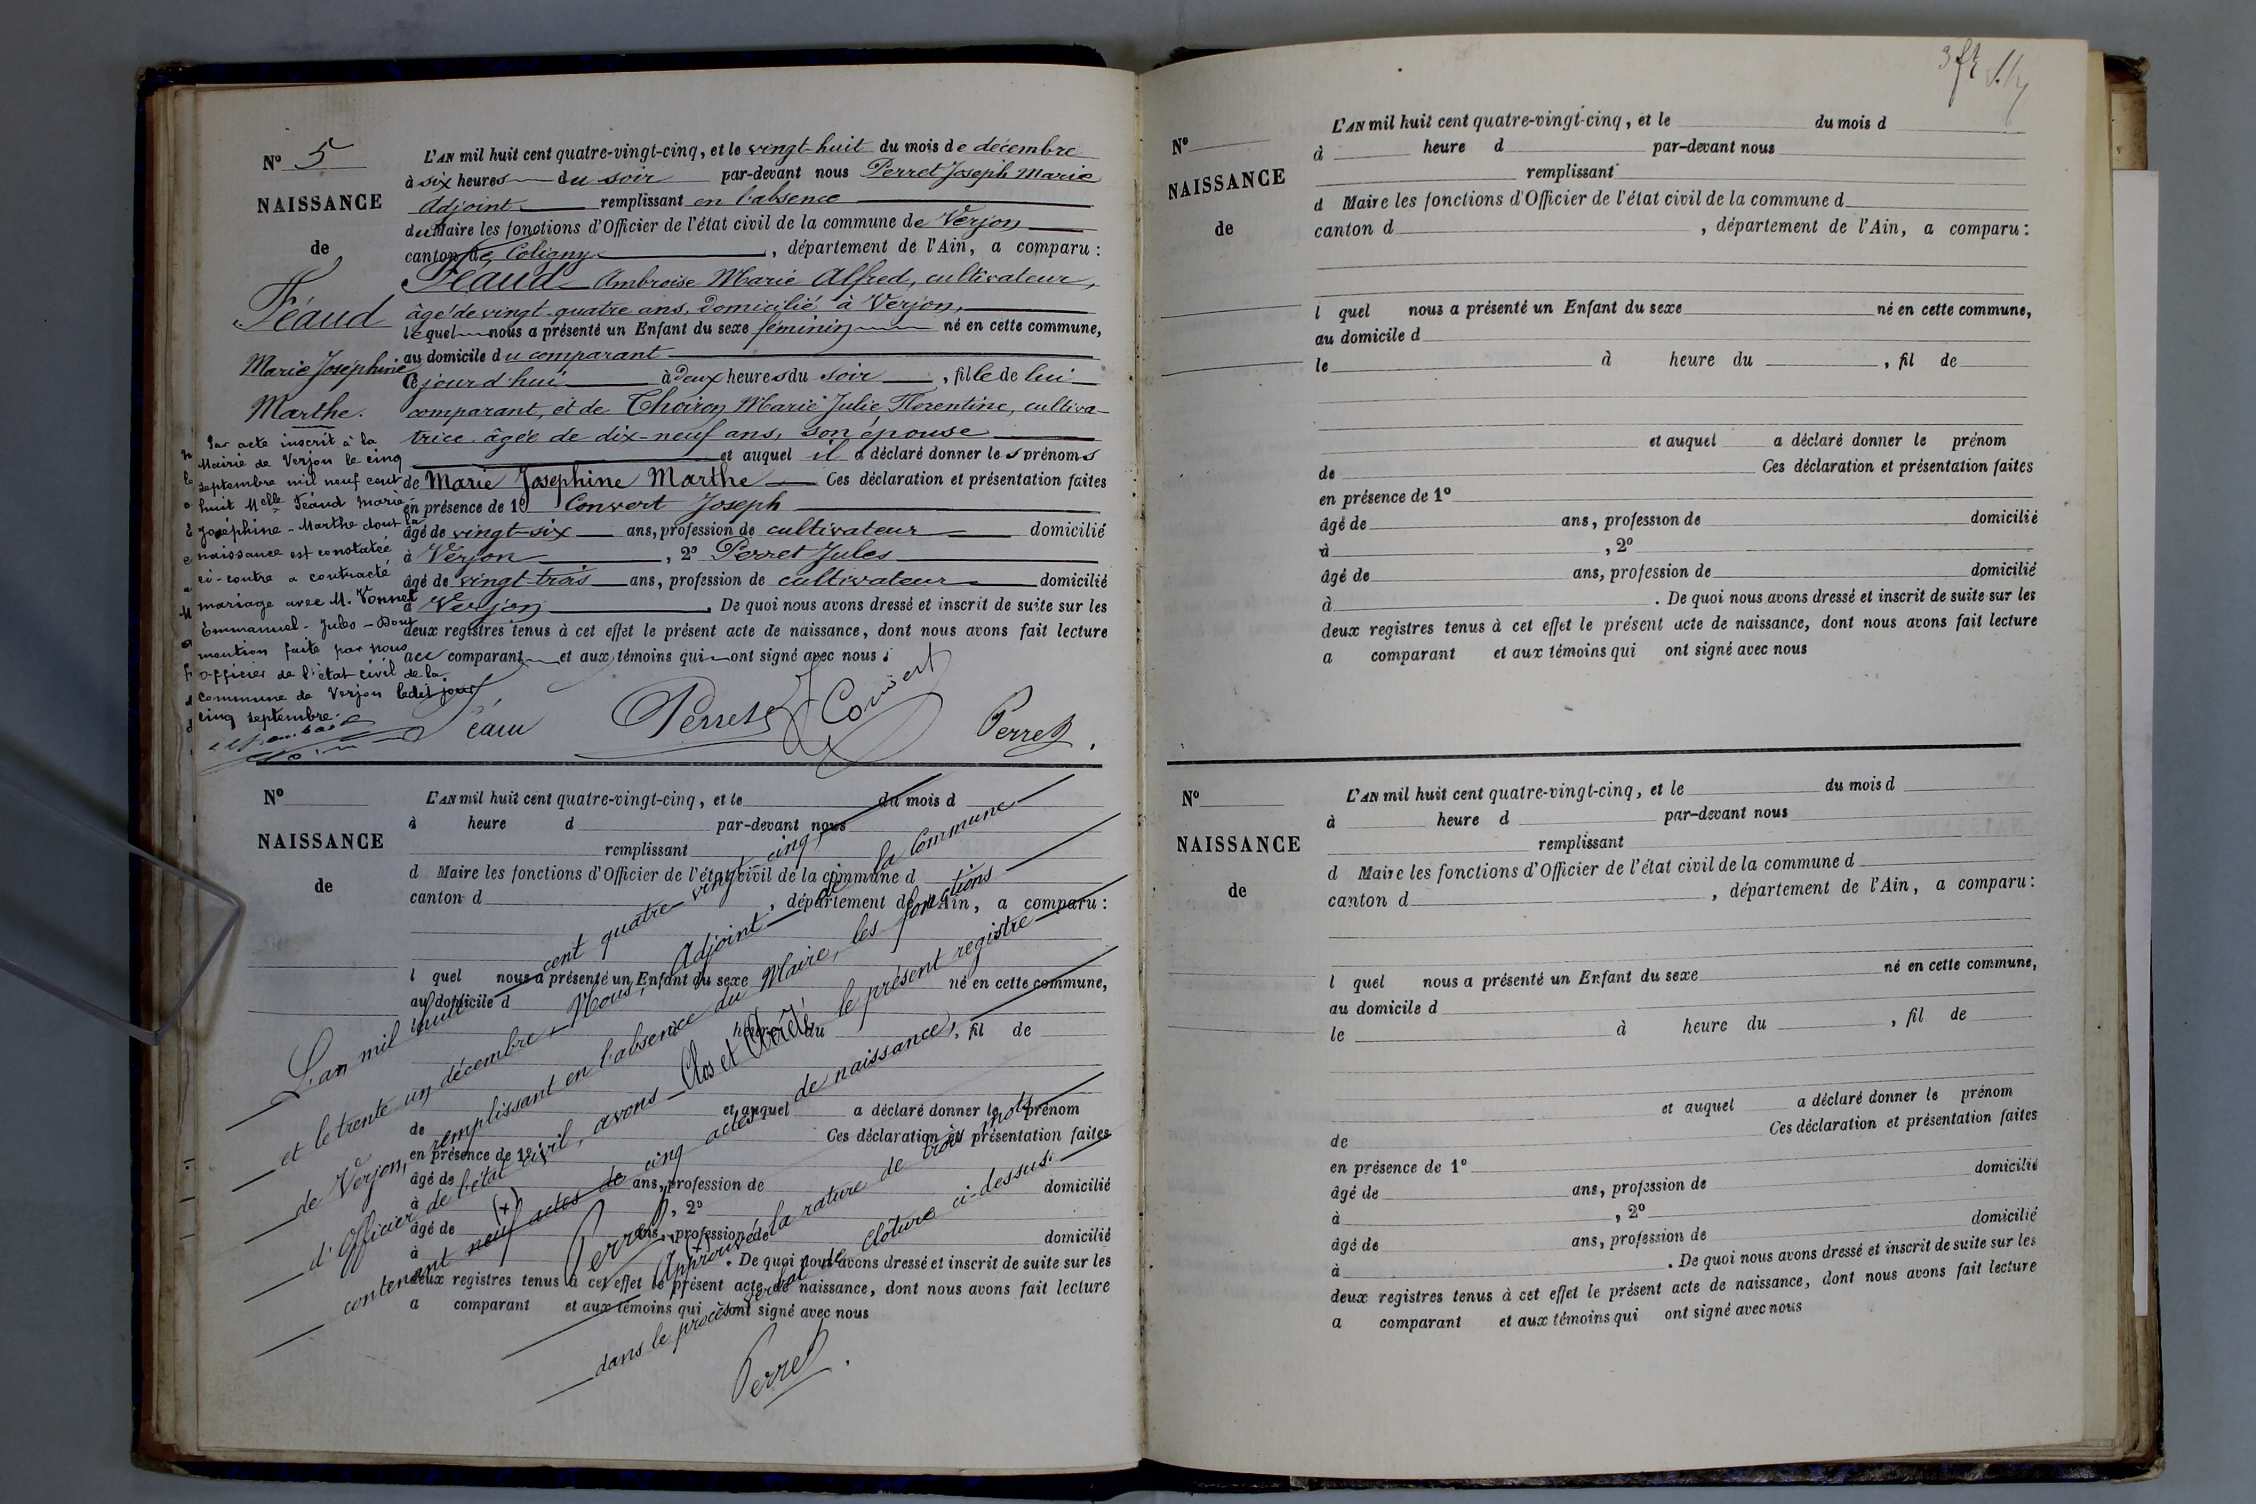 N° 5
NAISSANCE
de
Féaud
Marie Joséphine
Marthe.
Par acte inscrit à la
Mairie de Verjon le cinq
septembre mil neuf cent
huit Melle Féaud Marie-
Joséphine-Marthe dont la
naissance est constatée
ci-contre a contracté
mariage avec M. Vonnet
Emmanuel-Jules-Dont
mention faite par nous
officier de l'état civil de la
commune de Verjon ledit jour
cinq septembre.
L'AN mil huit cent quatre-vingt-cinq, et le vingt-huit du mois de décembre
à six heures du soir par-devant nous Perret Joseph Marie
Adjoint remplissant en l'absence
du Maire les fonctions d'Officier de l'état civil de la commune de Verjon
canton de Coligny, département de l'Ain, a comparu :
Féaud Ambroise Marie Alfred, cultivateur,
âgé de vingt-quatre ans, domicilié à Verjon,
lequel nous a présenté un Enfant du sexe féminin né en cette commune,
au domicile du comparant
Ce jourd'hui à deux heures du soir, fille de lui
comparant, et de Choiron Marie Julie Florentine, cultiva-
trice âgée de dix-neuf ans, son épouse
et auquel il a déclaré donner les prénoms
de Marie Josephine Marthe Ces déclaration et présentation faites
en présence de 1° Convert Joseph
âgé de vingt-six ans, profession de cultivateur domicilié
à Verjon, 2° Perret Jules
âgé de vingt-trois ans, profession de cultivateur domicilié
à Verjon. De quoi nous avons dressé et inscrit de suite sur les
deux registres tenus à cet effet le présent acte de naissance, dont nous avons fait lecture
au comparant et aux témoins qui ont signé avec nous.
Féau Perret J Convert Perret
N°
NAISSANCE
de
L'AN mil huit cent quatre-vingt-cinq, et le du mois d
à heure d par-devant nous
remplissant
d Maire les fonctions d'Officier de l'état civil de la commune d
canton d , département de l'Ain, a comparu :
l quel nous a présenté un Enfant du sexe né en cette commune,
au domicile d
à heure du , fil de
et auquel a déclaré donner le prénom
de Ces déclaration et présentation faites
en présence de 1°
âgé de ans, profession de domicilié
à , 2°
âgé de ans, profession de domicilié
à . De quoi nous avons dressé et inscrit de suite sur les
deux registres tenus à cet effet le présent acte de naissance, dont nous avons fait lecture
a comparant et aux témoins qui ont signé avec nous
L'an mil huit cent quatre-vingt-cinq,
et le trente un décembre, Nous, Adjoint de la Commune
de Verjon, remplissant en l'absence du Maire, les fonctions
d'Officier de l'état civil, avons Clos et Arrêté le présent registre
contenant neuf actes de cinq actes de naissance.
(+)
Perret
(+) Approuvé la rature de trois mots
dans le procès verbal de clôture ci-dessus.
Perret.
3 f
N°
NAISSANCE
de
L'AN mil huit cent quatre-vingt-cinq, et le du mois d
à heure d par-devant nous
remplissant
d Maire les fonctions d'Officier de l'état civil de la commune d
canton d , département de l'Ain, a comparu :
l quel nous a présenté un Enfant du sexe né en cette commune,
au domicile d
le à heure du , fil de
et auquel a déclaré donner le prénom
de Ces déclaration et présentation faites
en présence de 1°
âgé de ans, profession de domicilié
à , 2°
âgé de ans, profession de domicilié
à . De quoi nous avons dressé et inscrit de suite sur les
deux registres tenus à cet effet le présent acte de naissance, dont nous avons fait lecture
a comparant et aux témoins qui ont signé avec nous
N°
NAISSANCE
de
L'AN mil huit cent quatre-vingt-cinq, et le du mois d
à heure d par-devant nous
remplissant
d Maire les fonctions d'Officier de l'état civil de la commune d
canton d , département de l'Ain, a comparu :
l quel nous a présenté un Enfant du sexe né en cette commune,
au domicile d
le à heure du , fil de
et auquel a déclaré donner le prénom
de Ces déclaration et présentation faites
en présence de 1°
âgé de ans, profession de domicilié
à , 2°
âgé de ans, profession de domicilié
à . De quoi nous avons dressé et inscrit de suite sur les
deux registres tenus à cet effet le présent acte de naissance, dont nous avons fait lecture
a comparant et aux témoins qui ont signé avec nous